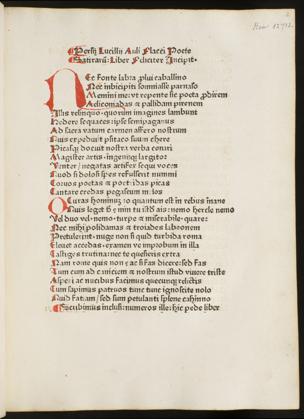 Persij Lucillij Auli Flacci Poete
Satirarum: Liber Feliciter Incipit.
Nec Fonte labra prolui caballino
Nec in bicipiti somniasse parnaso
Memini me: ut repente sic poeta prodirem
Heliconiadas & pallidam pirenem
Illis relinquo. quorum imagines lambunt
Hedere sequaces: ipse semipaganus
Ad sacra vatum carmen affero nostrum
Quis expedivit psitaco suum chere
Picasque docuit nostra verba conari
Magister artis. ingenijque largitor
Venter / negatas artifex sequi voces
Quod si dolosi spes refulserit nummi
Corvos poetas & poetridas picas
Cantare credas pegaseum
O Curas hominum: o quantum est in rebus inane
Quis leget hec min tu istud ais: nemo hercle nemo
Vel duo vel. nemo. turpe & miserabile. quare:
Nec mihi polidamas & troiades labeonem
Pretulerint. nuge non si quid turbida roma
Elevet accedas. examen ve improbum in illa
Castiges trutina: nec te quesieris extra
Nam rome quis non: ac si fas dicere: sed fas
Tum cum ad caniciem & nostrum istud vivere triste
Aspexi ac nucibus facimus quecunque relictis
Cum sapimus patruos tunc tunc ignoscite nolo
Quid faciam / sed sum petulanti splene cachinno
Scribimus inclusi: numeros ille: hic pede liber